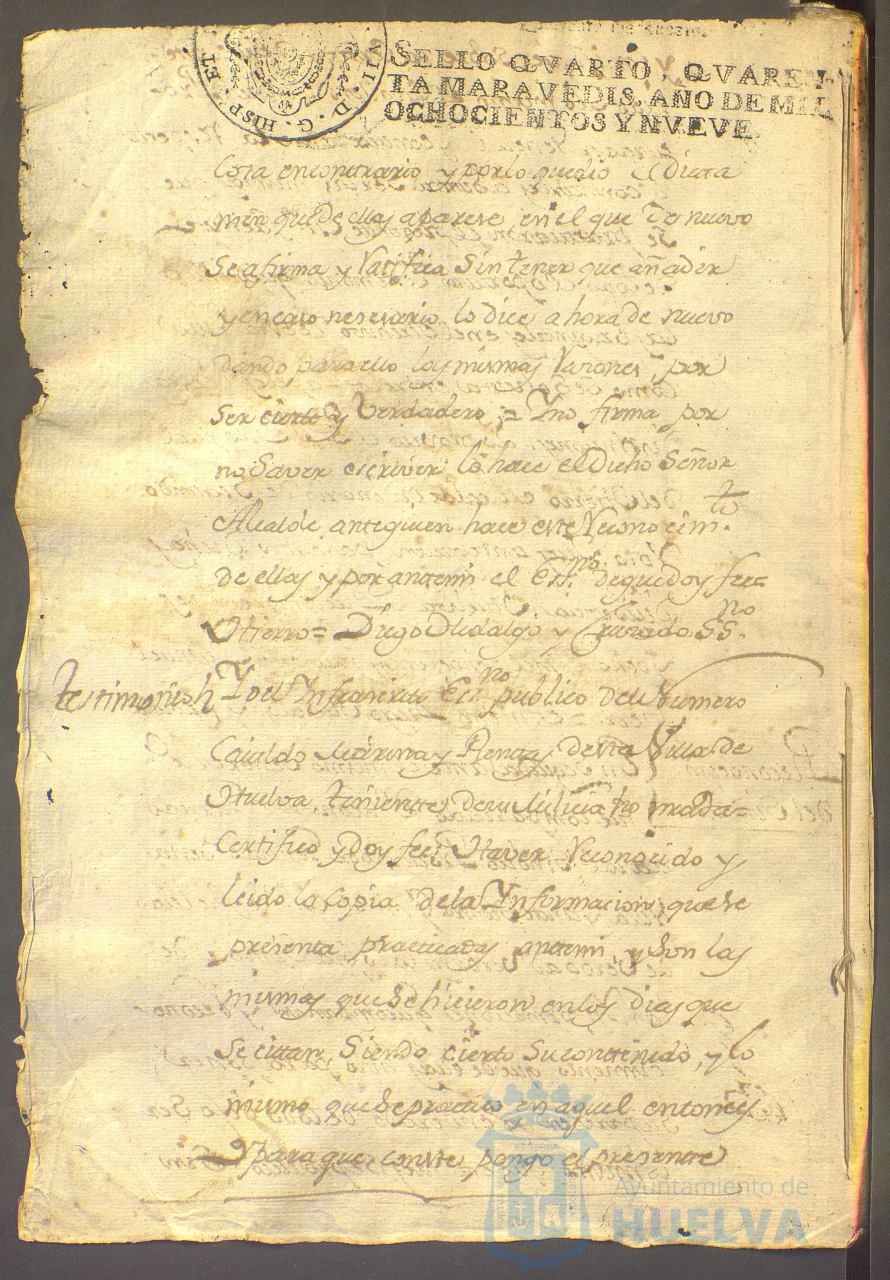 VII. D. G. HISP. ET
SELLO QVARTO, QVAREN-
TA MARAVEDIS, AÑO DE MIL
OCHOCIENTOS Y NVEVE.
Cosa encontrario y por lo que dio el dicta
men que de ellas aparese en el que de nuevo
Se afirma y Ratifica Sin tener que añadir
y en caso nesesario lo dice ahora de nuevo
dando para ello las mismas Rasones, por
Ser cierto y Verdadero; = Y no firma por
no Saver escriver lo hace el Dicho Señor
Alcalde antequien hace este Reconocim.to
de ellas y por antemi el Es.no de que doy fee=
Hierro= Diego Hidalgo y Cruzado. SS.no
testimonio Yo el Infraescrito Es.no publico del Numero
Cavaldo Marina y Rentas de esta Villa de
Huelva theniente de su Milicia
Certifico y doy fee; Haver Reconosido y
leido la Copia de la Ynformacion que se
presenta practicadas antemi, y Son las
mismas que Se hicieron en los dias que
Se cittan, Siendo cierto Su contenido, y lo
mismo que Se practico en aquel entonces
Y para que conste pongo el presente
Ayuntamiento de
HUELVA